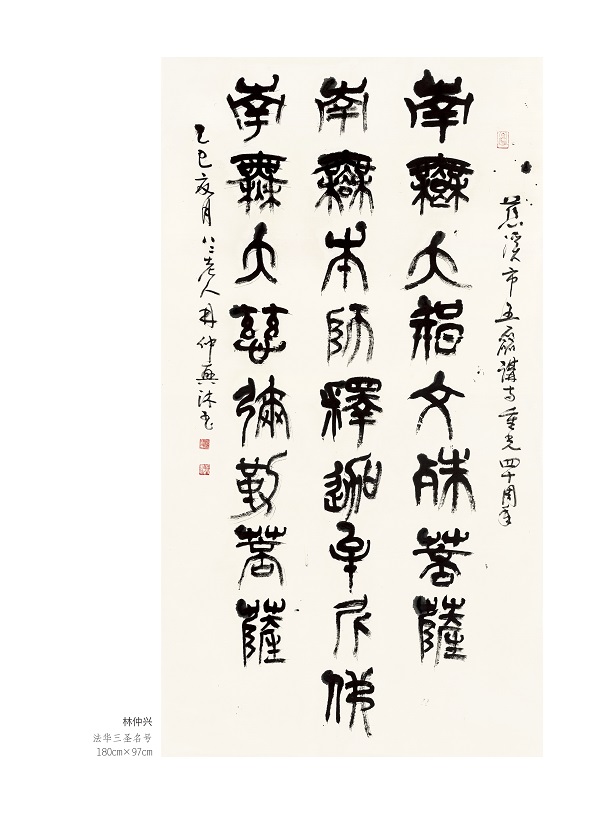 慈溪市五磊講寺重光四十周年
南無大智文殊菩薩
南無本師釋迦牟尼佛
南無大慈彌勒菩薩
乙巳夏月八三老人林仲興沐书
林仲兴
法华三圣名号
180cm×97cm